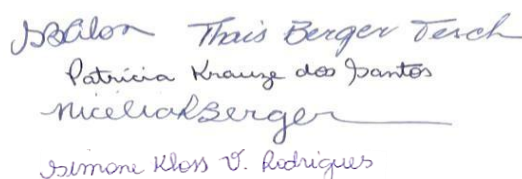 Thais Berger Tesch
Patrícia Krauze dos Santos
Nicelia R Berger
Simone Kloss V. Rodrigues